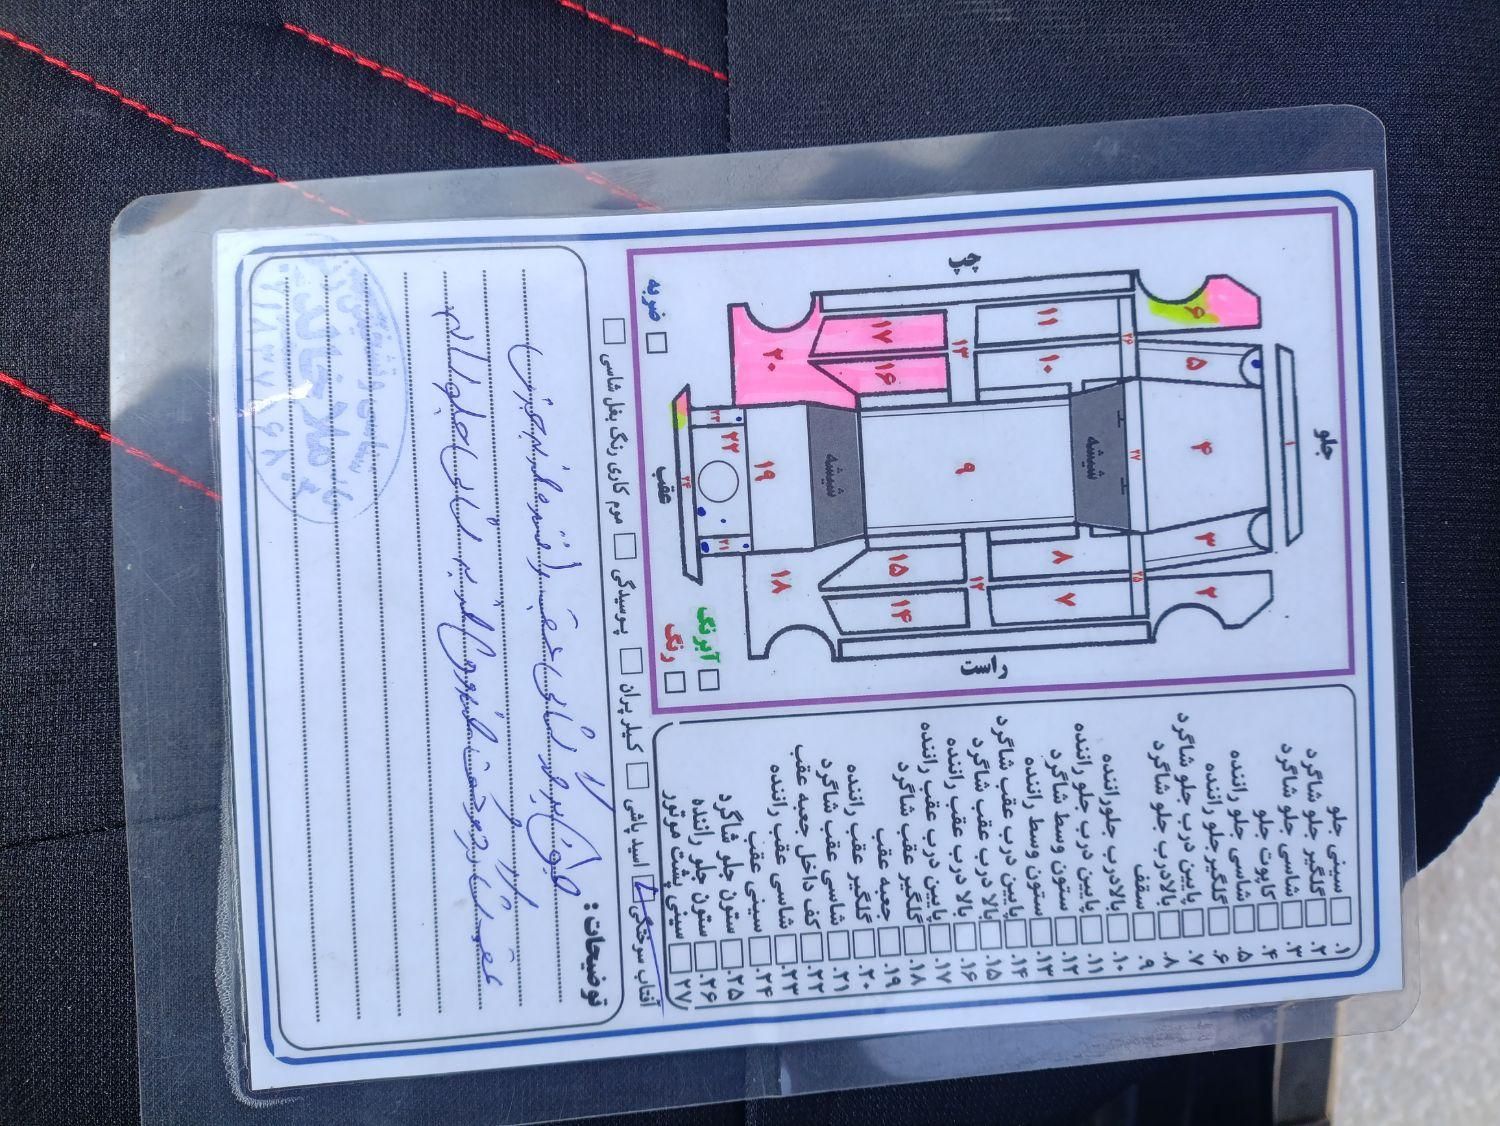 جلو
چپ
راست
عقب
شیشه
شیشه
۱
۲
۳
۴
۵
۶
۷
۸
۹
۱۰
۱۱
۱۲
۱۳
۱۴
۱۵
۱۶
۱۷
۱۸
۱۹
۲۰
۲۱
۲۲
۲۳
۲۴
۲۵
۲۶
۲۷
ضربه
آبرنگ
رنگ
۱. سینی جلو
۲. گلگیر جلو شاگرد
۳. شاسی جلو شاگرد
۴. کاپوت جلو
۵. شاسی جلو راننده
۶. گلگیر جلو راننده
۷. پایین درب جلو شاگرد
۸. بالادرب جلو شاگرد
۹. سقف
۱۰. بالادرب جلوراننده
۱۱. پایین درب جلو راننده
۱۲. ستون وسط شاگرد
۱۳. ستون وسط راننده
۱۴. پایین درب عقب شاگرد
۱۵. بالا درب عقب شاگرد
۱۶. بالا درب عقب راننده
۱۷. پایین درب عقب راننده
۱۸. گلگیر عقب شاگرد
۱۹. جعبه عقب
۲۰. گلگیر عقب راننده
۲۱. شاسی عقب شاگرد
۲۲. کف داخل جعبه عقب
۲۳. شاسی عقب راننده
۲۴. سینی عقب
۲۵. ستون جلو شاگرد
۲۶. ستون جلو راننده
۲۷. سینی پشت موتور
آفتاب سوختگی اسید پاشی کیلر پران پوسیدگی موم کاری رنگ بغل شاسی
توضیحات: